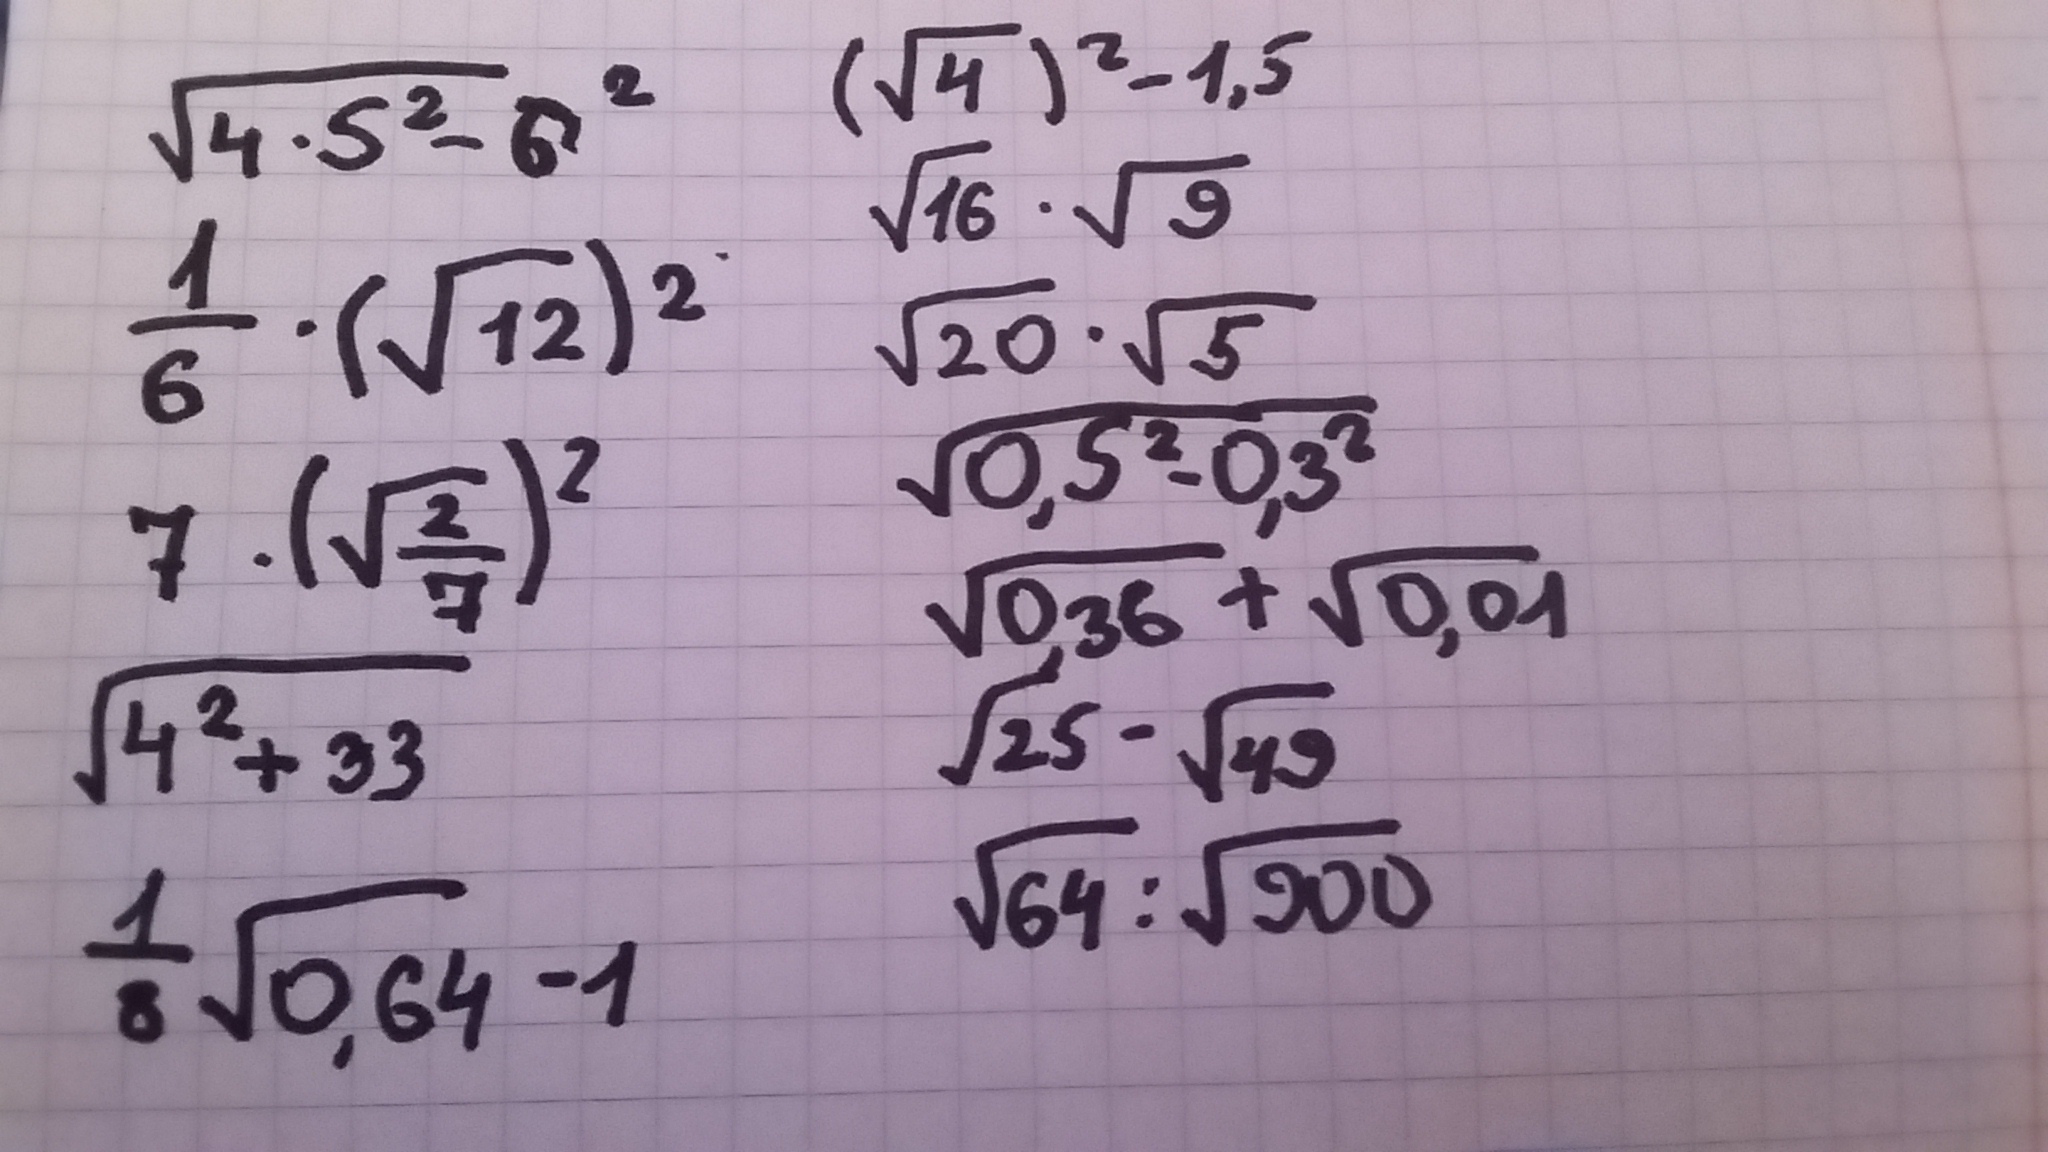 √(4·5²-6²)
1/6 · (√12)²
7 · (√(2/7))²
√(4²+33)
1/8 √0,64 - 1
(√4)² - 1,5
√16 · √9
√20 · √5
√(0,5²-0,3²)
√0,36 + √0,01
√25 - √49
√64 : √900